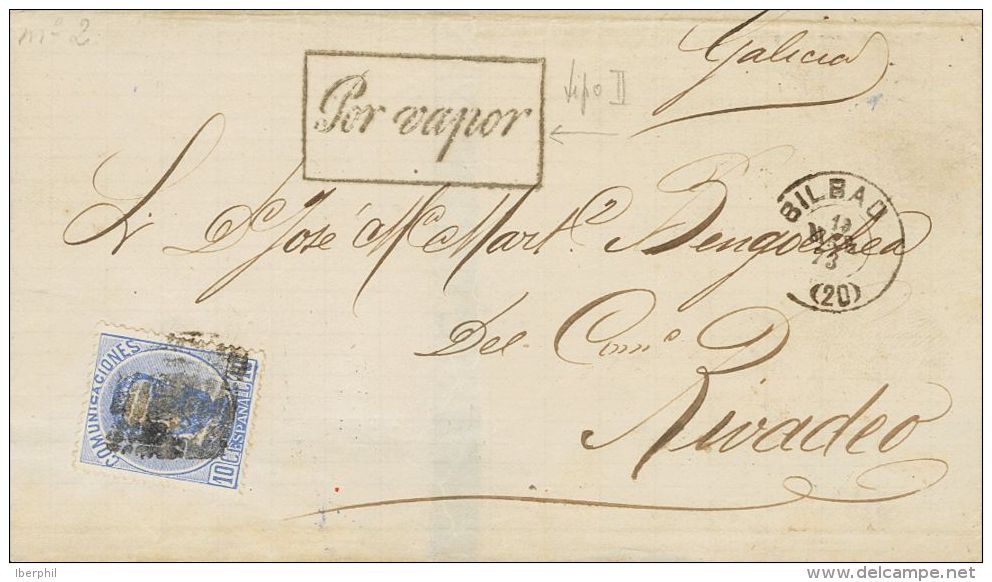 mº 2
Galicia
Por vapor
tipo II
Sr. Dn José Ma Martz Bengoechea
BILBAO
13
73
(20)
Del Comº D
Rivadeo
COMUNICACIONES
10 C. ESPAÑA
Iberphil
www.delcampe.net